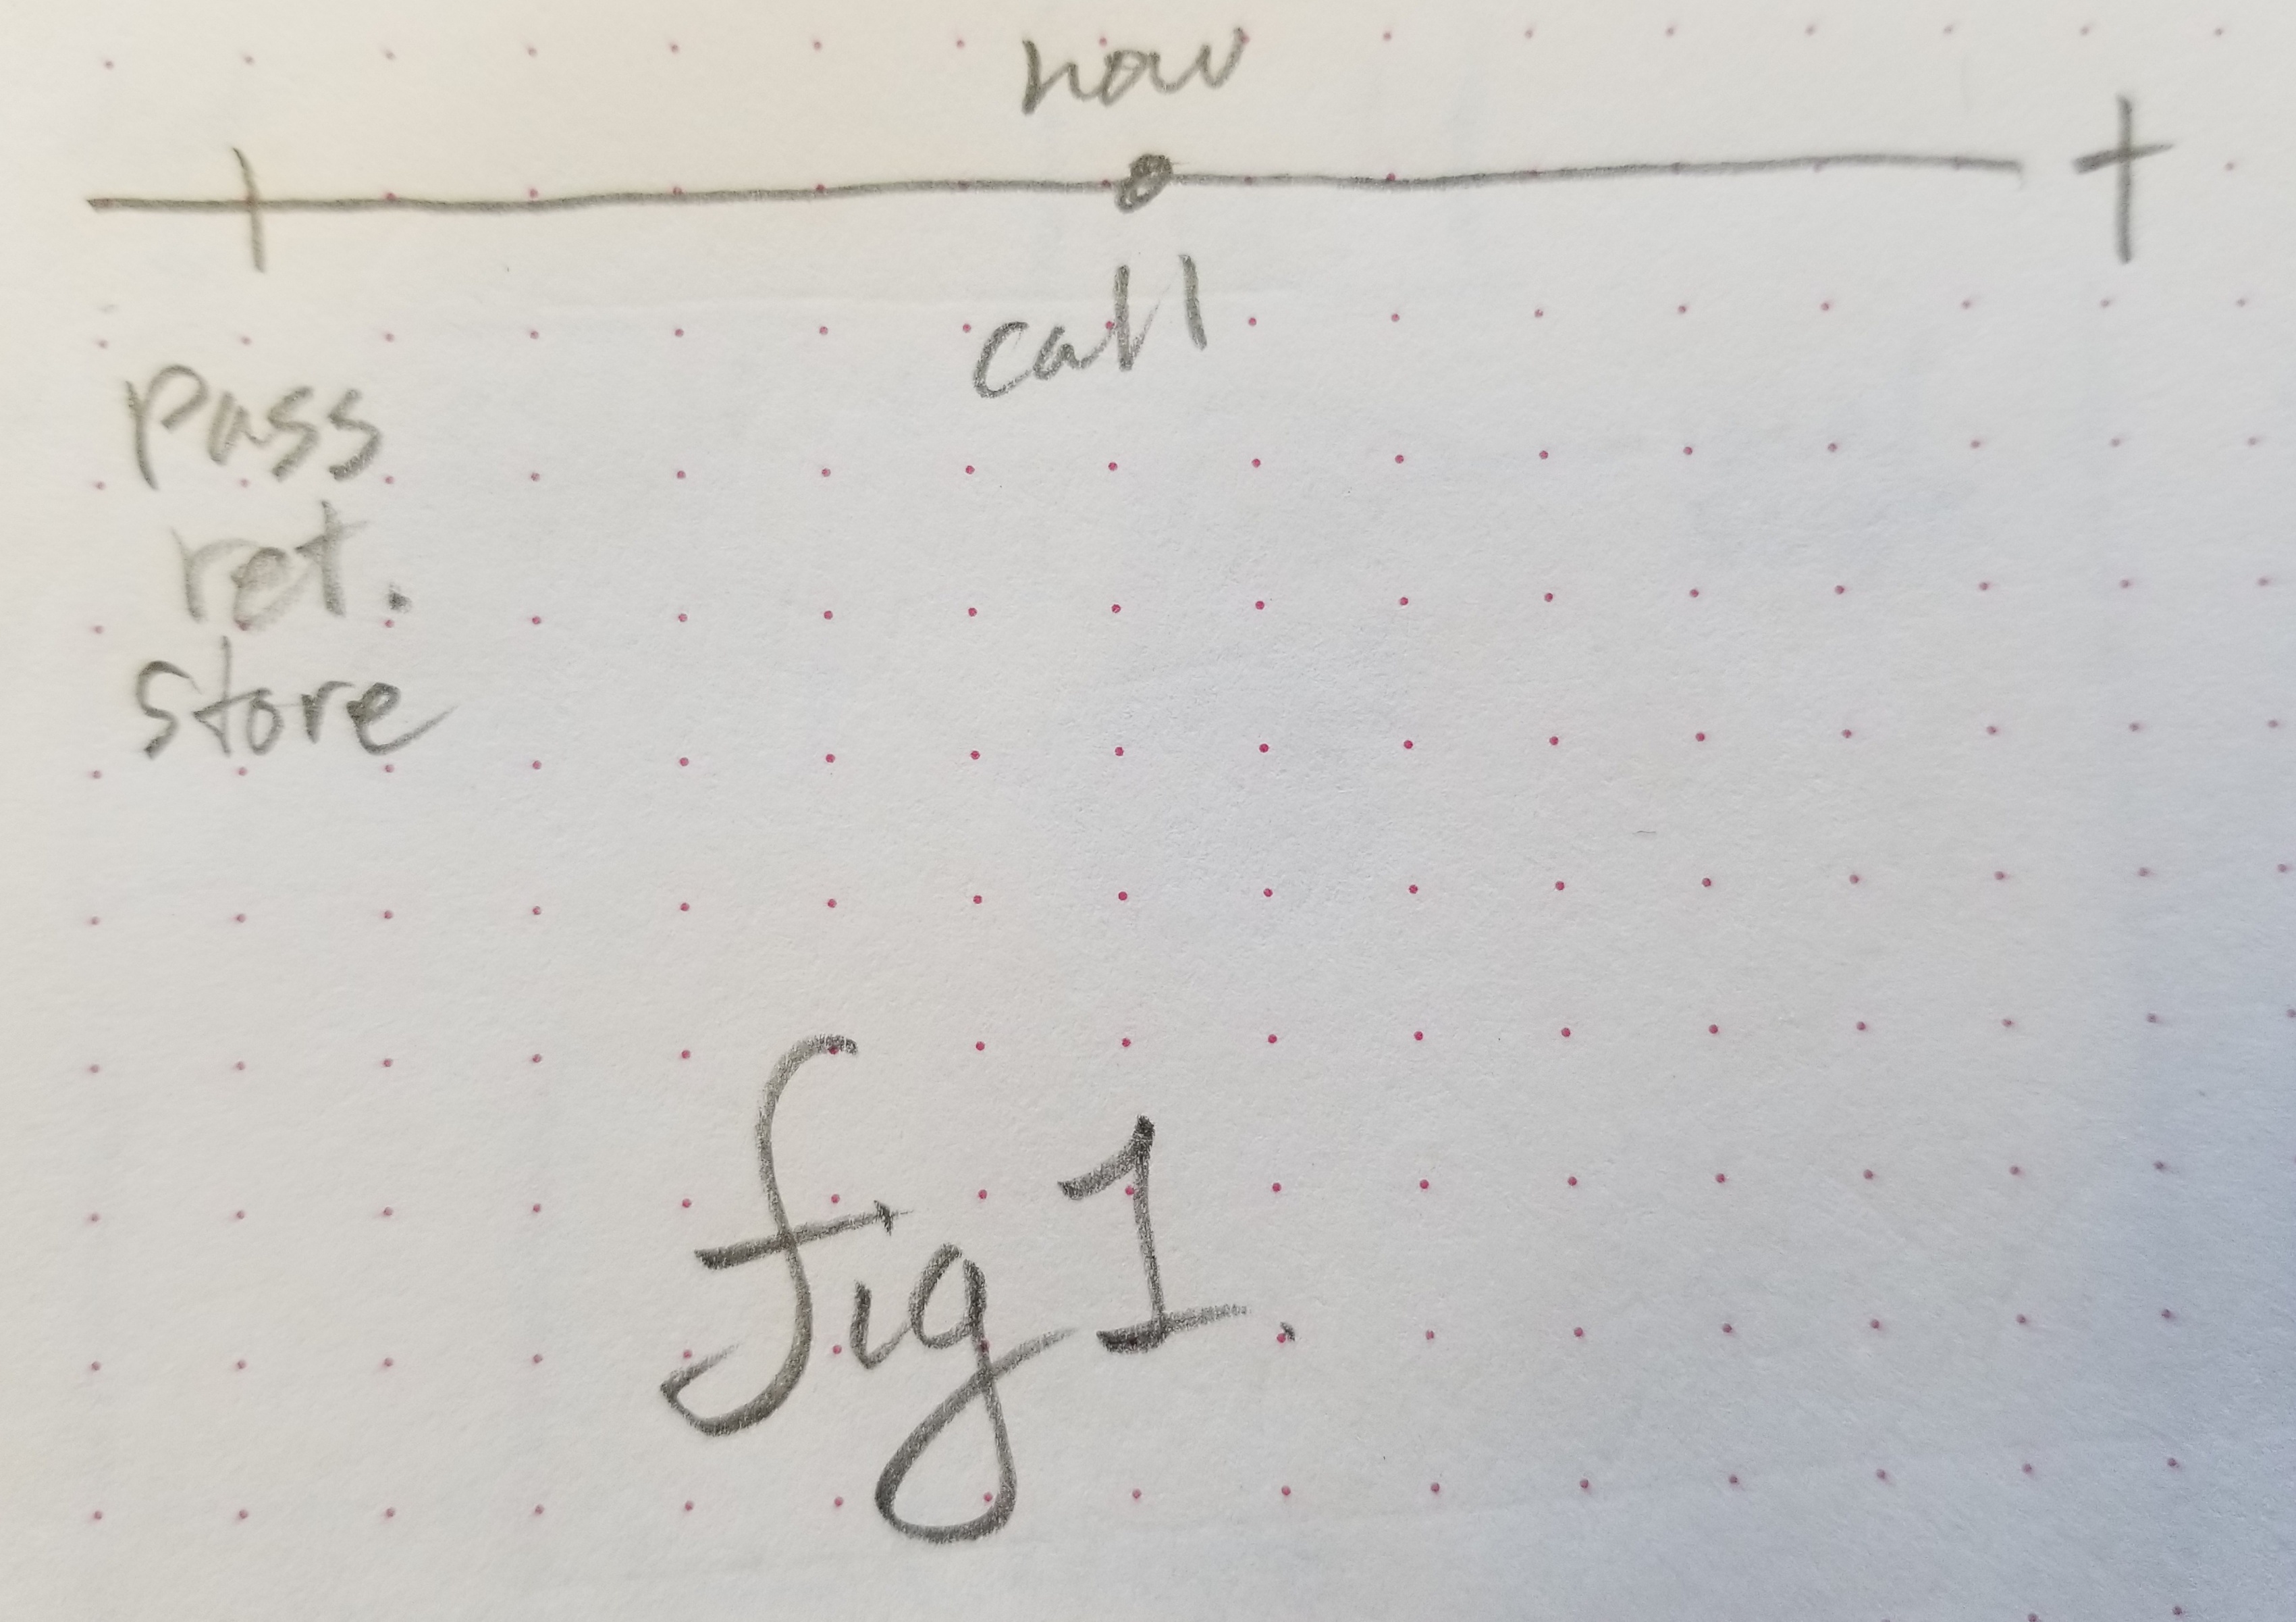 now
+
call
pass
ret.
store
fig 1.